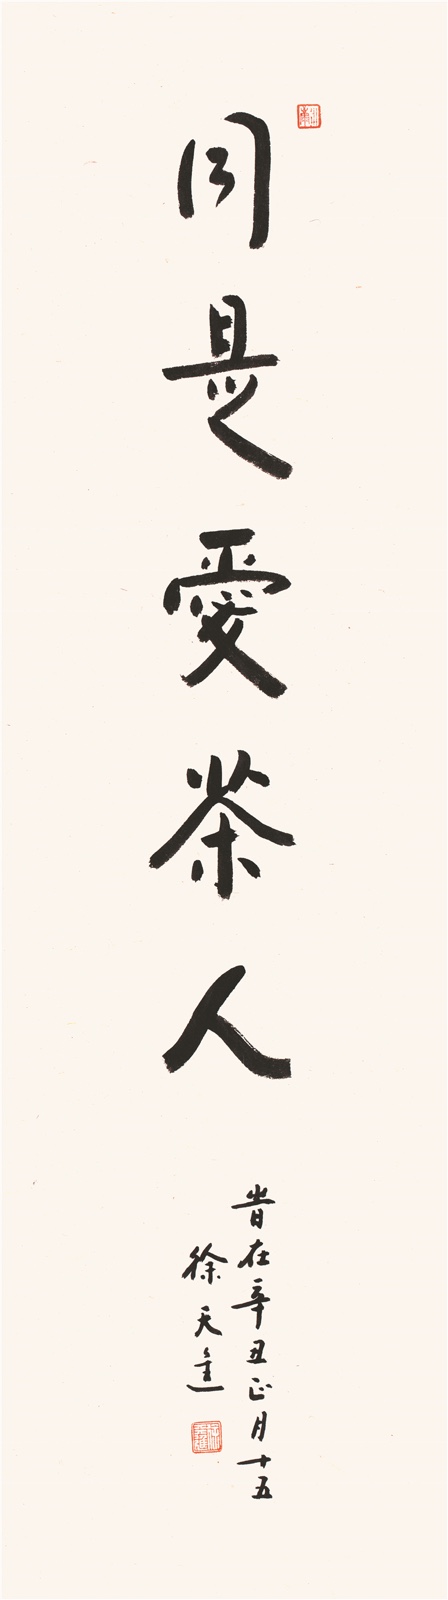 同是愛茶人
旹在辛丑正月十五
徐天進